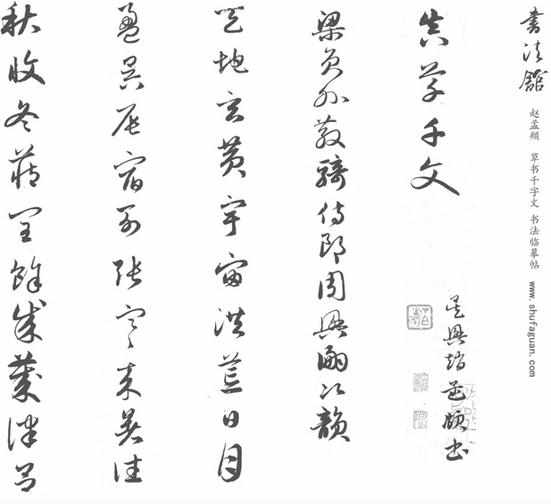 書法舘
赵孟頫 草书千字文 书法临摹帖 www.shufaguan.com
真草千文
吳興趙孟頫書
梁員外散騎侍郎周興嗣次韻
天地玄黄宇宙洪荒日月
盈昃辰宿列張寒来暑往
秋收冬藏閏餘成歲律吕